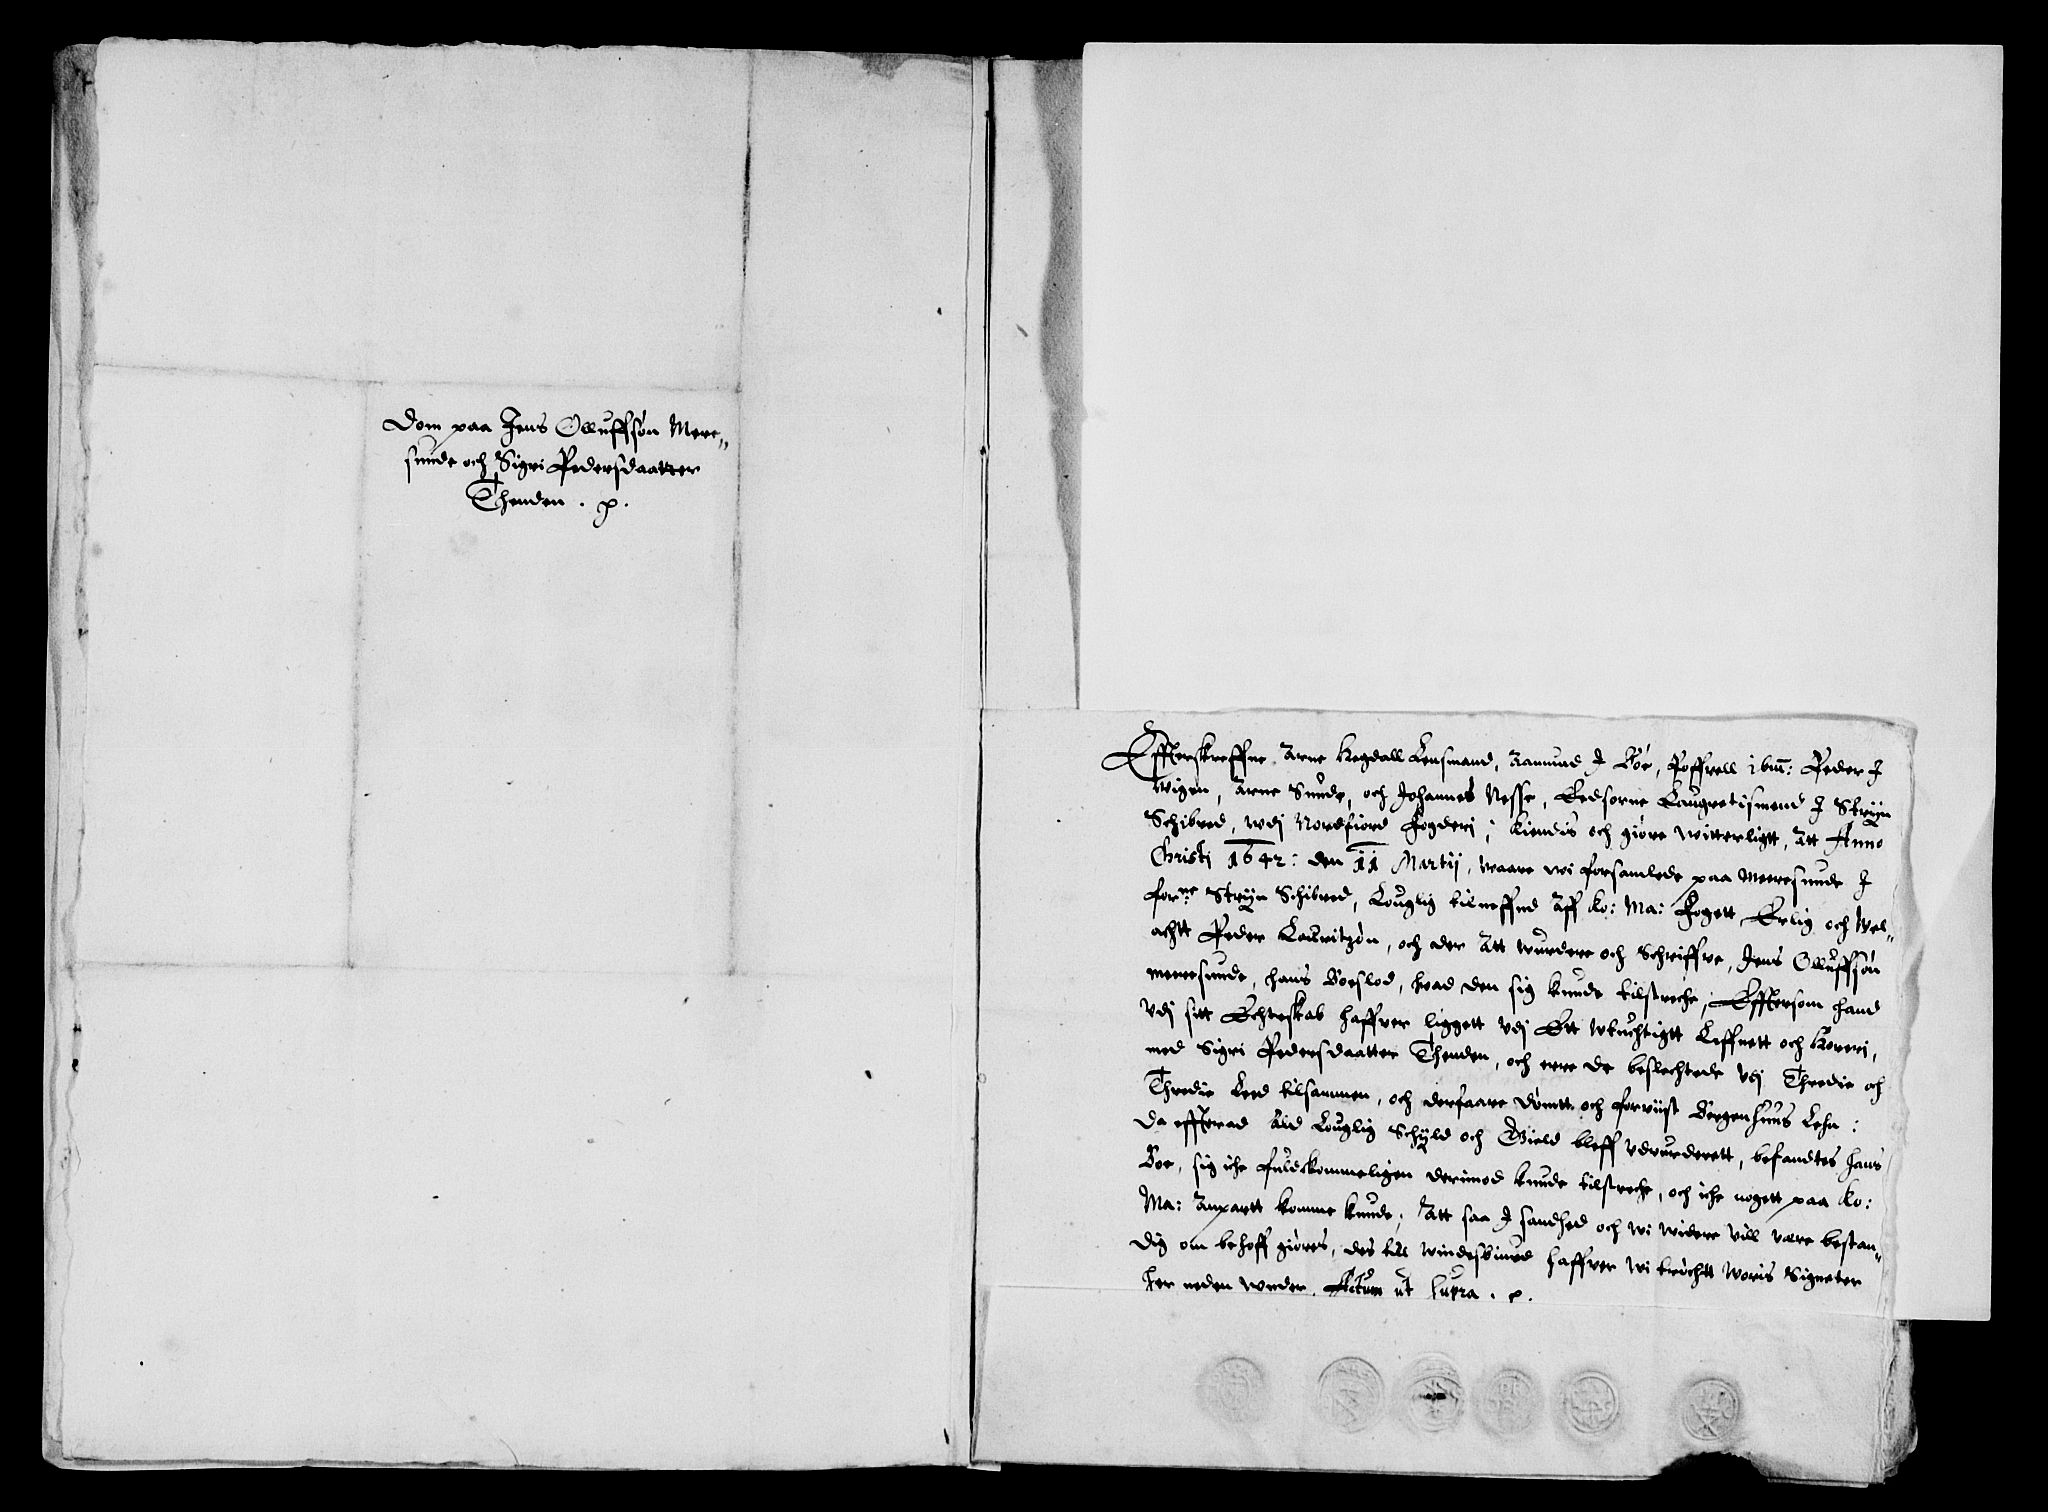 Dom paa Jens Olluffsøn Mere„
sunde och Sigri Pedersdaatter
Thenden . p.
Effterskreffne Arne Hegdall Lensmand, Aamund I Bøe, Poffvell ibm: Peder I
Wigen, Arne Sunde, och Johannes Nesse, Eedsorne Laugretismend I Stryn
Schibred, wdj Nordfiord Fogderj, Kiendis och giøre witterligtt, Att Anno
Christi 1642: den 11 Martij, waare wi forsamlede paa Meeresunde I
forne: Stryn Schibred, Louglig tilneffnd Aff Ko: Ma: Fogett, Erlig och Wel„
achtt Peder Lauritzøn, och der Att wurdere och Schriffve, Jens Olluffsøn
meeresunde, hans Boeslod, hvad den sig kunde tilstreche, Effttersom hand
Vdj sitt Echteskab haffver liggett Vdj Ett wtuchtigtt Leffnett och Horerj,
med Sigri Pedersdaatter Thenden, och erre de beslechtede Vdj Thredie och
Thredie Leed tilsammen, och derfaare dømtt och forviist Bergenhuus Lehn:
Da effterad Ald Louglig Schyld och Gield bleff vdvurderett, befandtes hans
Boe, sig iche fuldkommeligen derimod kunde tilstreche, och iche nogett paa Ko:
Ma: Anpartt komme kunde; Att saa I sandhed och wi widere vill være bestan„
dig om behoff giøres, des till windesbiurd haffver wi trøchtt woris Signeter
her neden wnder. Actum ut supra . p.